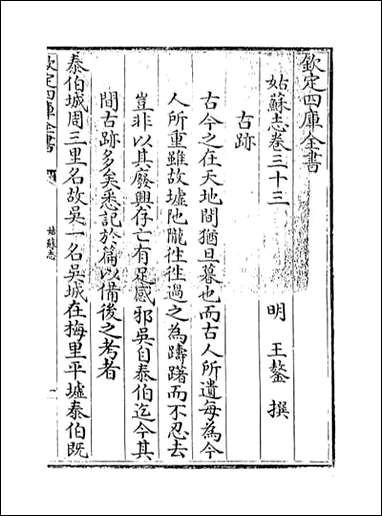 欽定四庫全書
姑蘇志卷三十三
明 王鏊 撰
古跡
古今之在天地間猶旦暮也而古人所遺每為今
人所重雖故墟阤隴徃徃過之為躊躇而不忍去
豈非以其廢興存亡有足感邪吳自泰伯迄今其
間古跡多矣悉記於篇以備後之考者
泰伯城周三里名故吳一名吳城在梅里平墟泰伯既
欽定四庫全書
姑蘇志
一